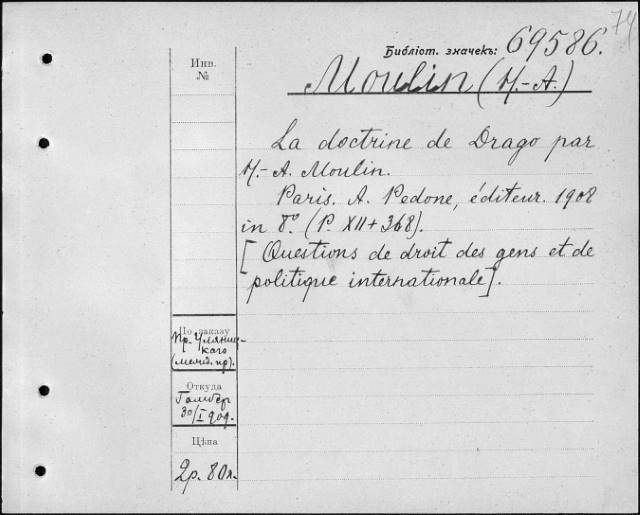 74
Библіот. значекъ: 69586.
Moulin (H.-A.)
La doctrine de Drago par
H.-A. Moulin.
Paris. A. Pedone, éditeur. 1908
in 8º. (P. XII + 368).
[Questions de droit des gens et de
politique internationale].
Инв.
№
По заказу
Пр. Уляниц-
каго
(межд. пр).
Откуда
30/I 909.
Цѣна
2р. 80к.